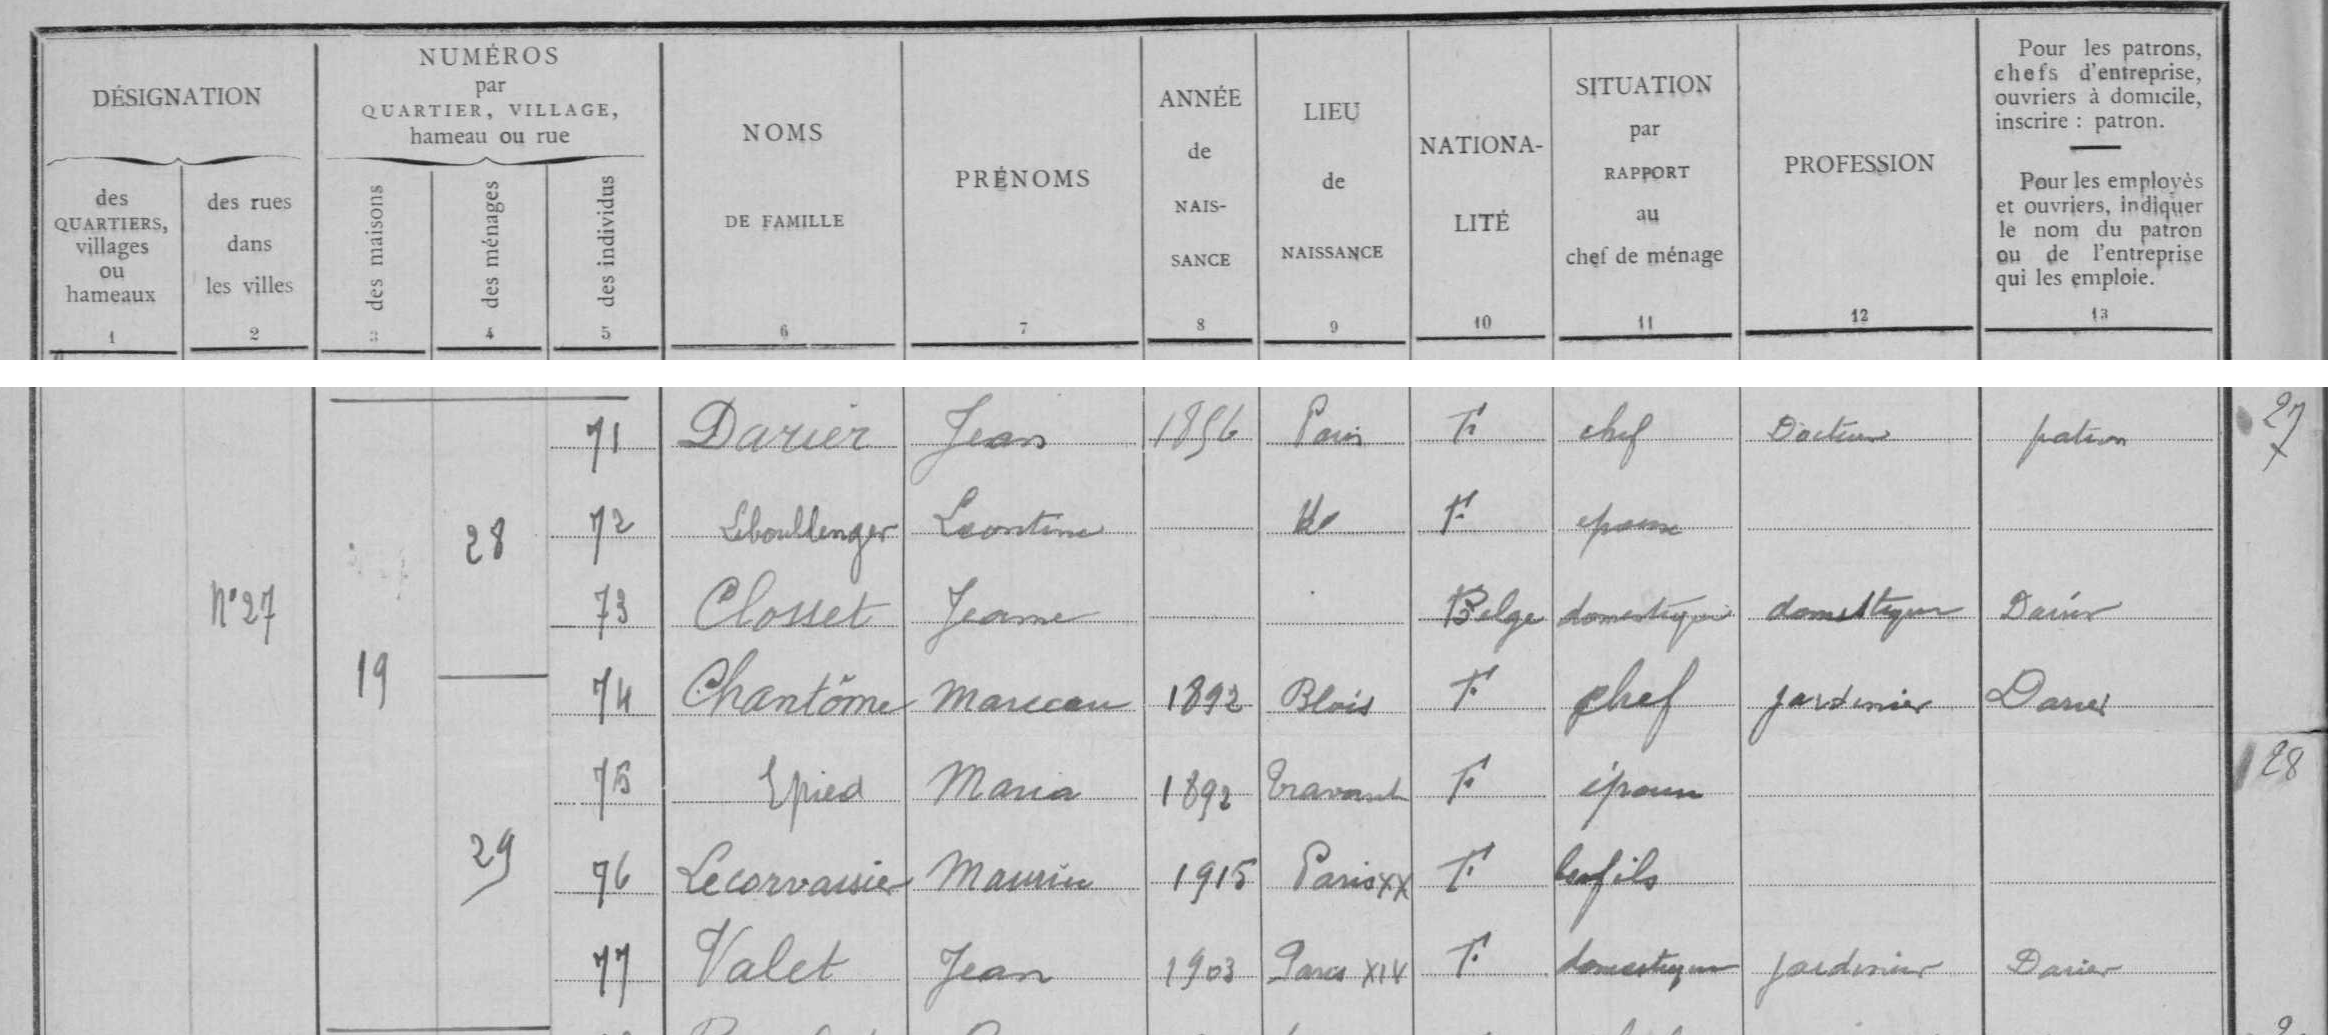 DÉSIGNATION
NUMÉROS
par
QUARTIER, VILLAGE,
hameau ou rue
des
QUARTIERS,
villages
ou
hameaux
1
des rues
dans
les villes
2
des maisons
3
des ménages
4
des individus
5
NOMS
DE FAMILLE
6
PRÉNOMS
7
ANNÉE
de
NAIS-
SANCE
8
LIEU
de
NAISSANCE
9
NATIONA-
LITÉ
10
SITUATION
par
RAPPORT
au
chef de ménage
11
PROFESSION
12
Pour les patrons,
chefs d'entreprise,
ouvriers à domicile,
inscrire : patron.
Pour les employés
et ouvriers, indiquer
le nom du patron
ou de l'entreprise
qui les emploie.
13
71 Darier Jean 1856 Paris F. chef Docteur patron 27
28 72 Leboullenger Leontine F. epouse
N°27 73 Closset Jeanne Belge domestique domestique Darier
19 74 Chantôme Marceau 1892 Blois F. chef jardinier Darier
75 Epied Maria 1892 F. épouse 28
29 76 Lecorvaisier Maurice 1915 Paris XX F. beaufils
77 Valet Jean 1903 Paris XIV F. domestique jardinier Darier